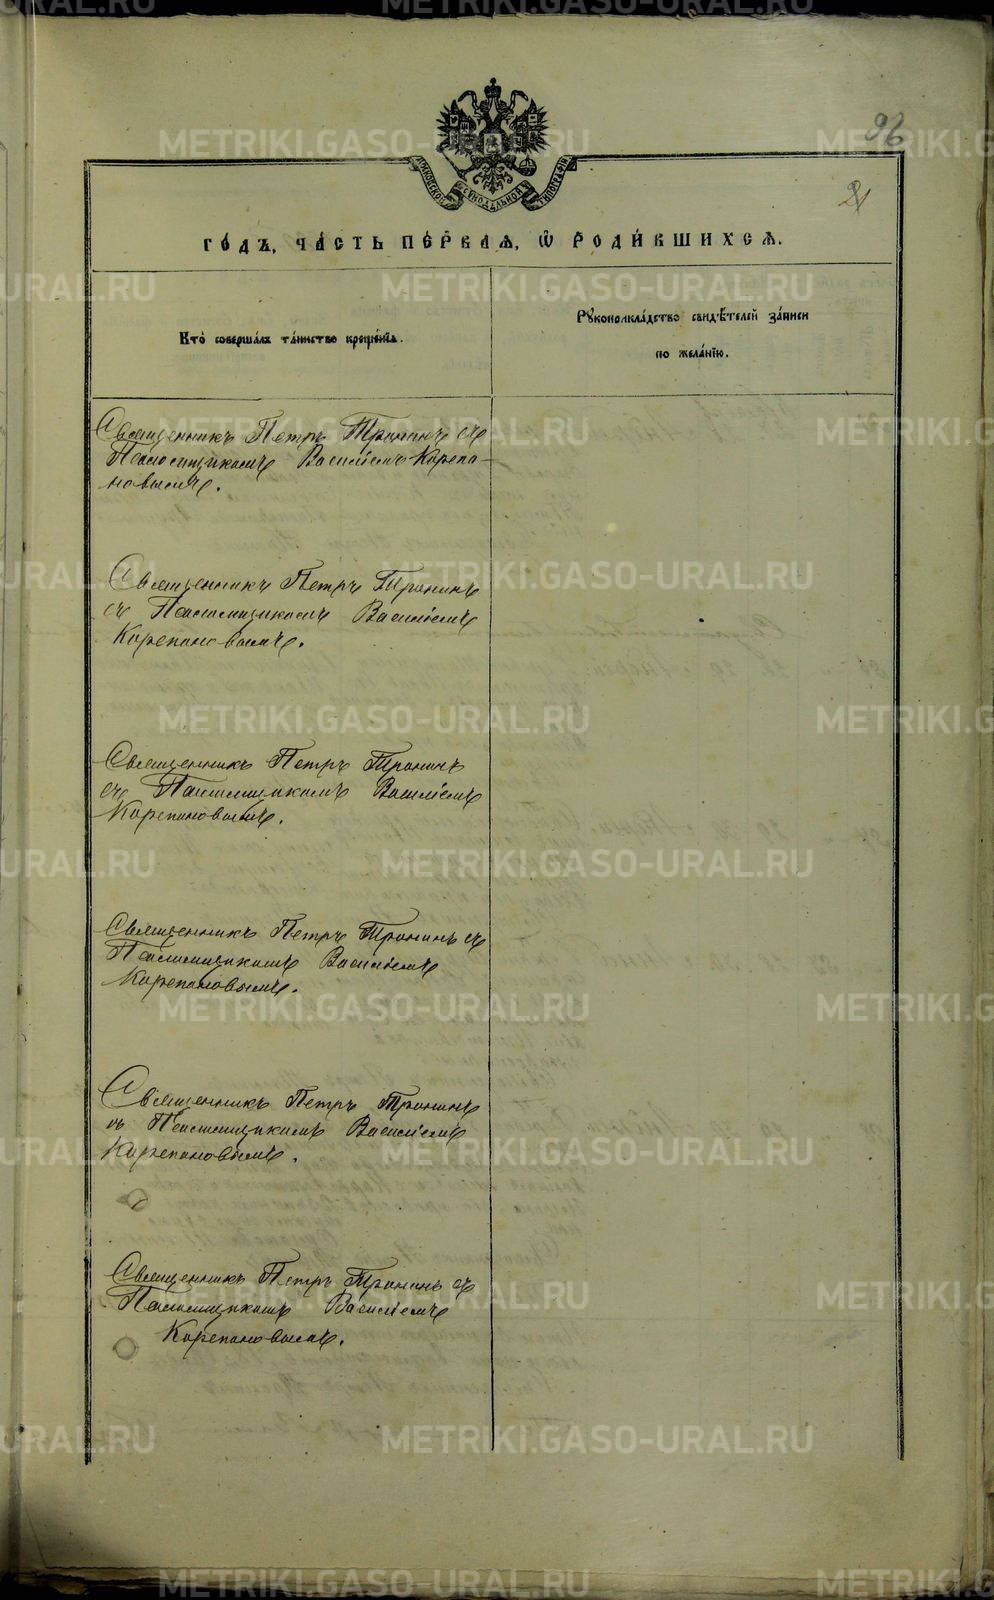 96
21
МОСКОВСКОЙ СѴНОДАЛЬНОЙ ТИПОГРАФІИ
го́дъ, ча́сть пе́рваѧ, ѡ҆ роди́вшихсѧ.
Кто̀ соверша́лъ та́инство креще́нїѧ.
Рꙋкоприкла́дство свидѣ́телей за́писи
по жела́нїю.
Священникъ Петръ Тронинъ съ
Псаломщикомъ Василіемъ Корепа-
новымъ.
Священникъ Петръ Тронинъ
съ Псаломщикомъ Василіемъ
Корепановымъ.
Священникъ Петръ Тронинъ
съ Псаломщикомъ Василіемъ
Корепановымъ.
Священникъ Петръ Тронинъ съ
Псаломщикомъ Василіемъ
Корепановымъ.
Священникъ Петръ Тронинъ
съ Псаломщикомъ Василіемъ
Корепановымъ.
Священникъ Петръ Тронинъ съ
Псаломщикомъ Василіемъ
Корепановымъ.
METRIKI.GASO-URAL.RU